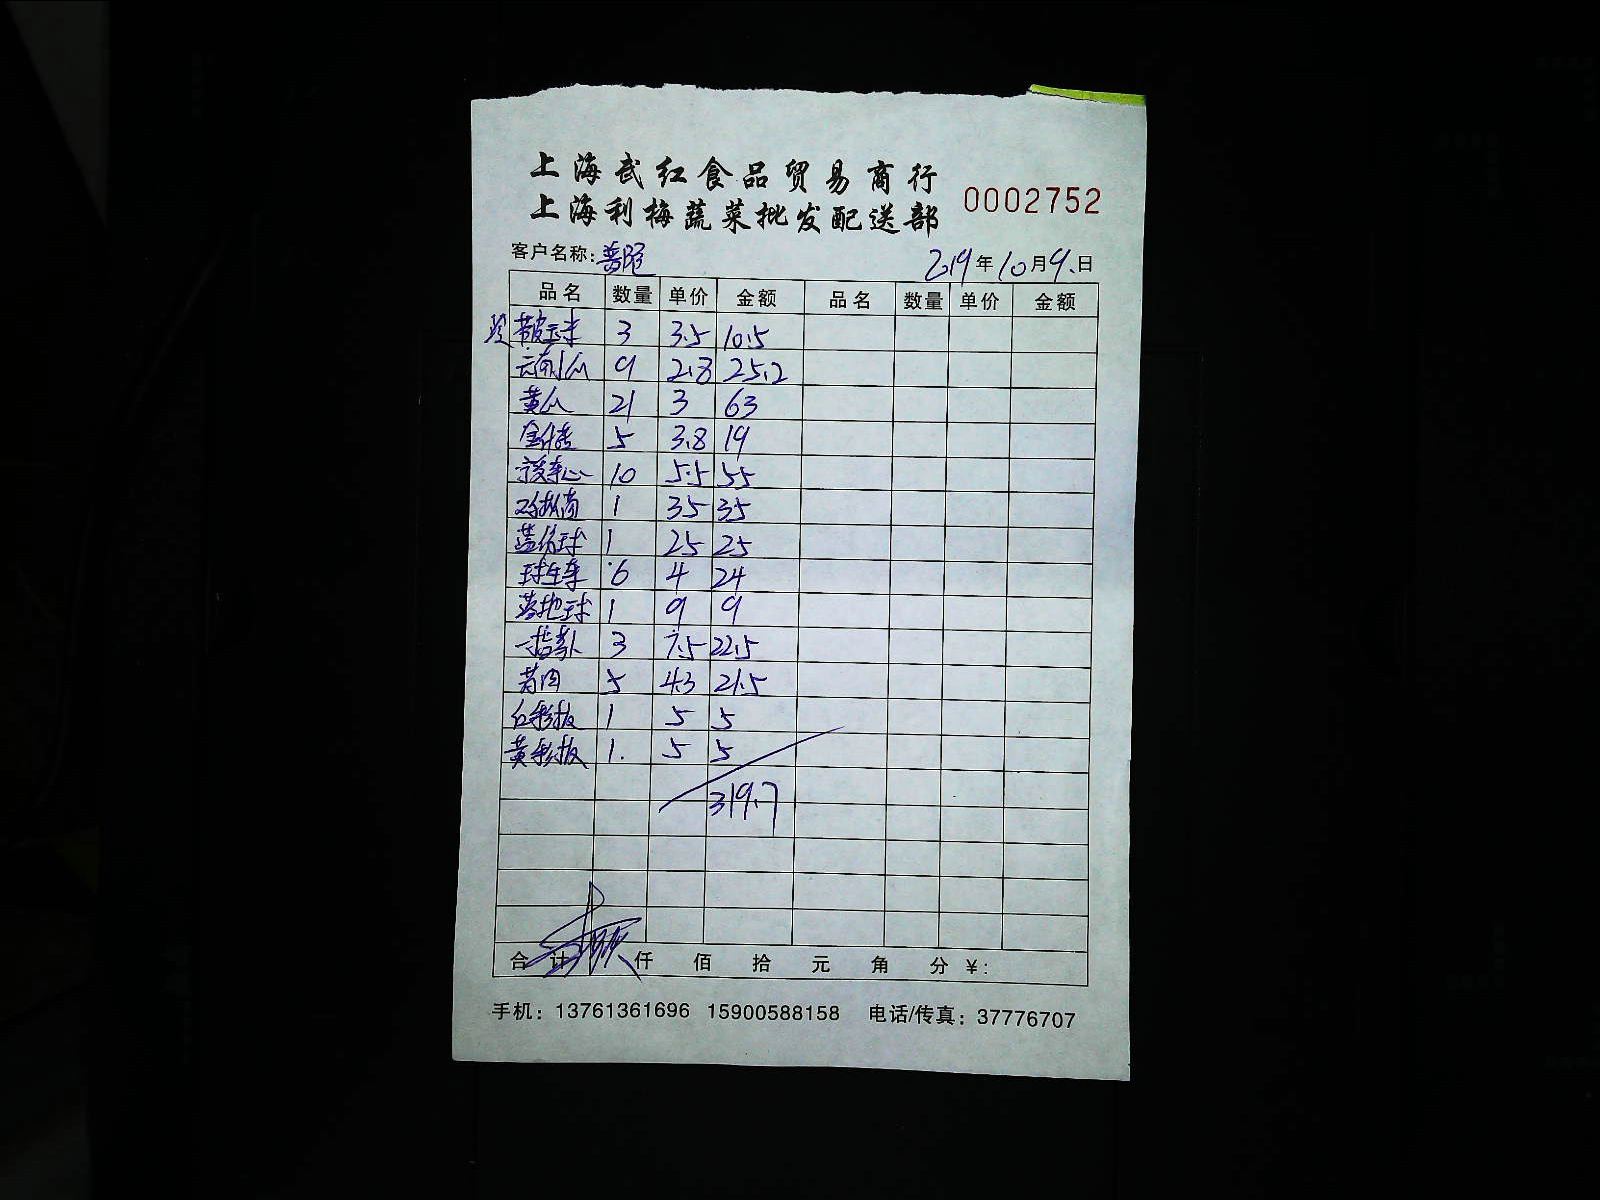 上海武红食品贸易商行
上海利梅蔬菜批发配送部
0002752
客户名称: 普陀
2019年10月9.日
品名 数量 单价 金额 品名 数量 单价 金额
3 3.5 10.5
云南小瓜 9 2.8 25.2
黄瓜 21 3 63
5 3.8 19
10 5.5 55
1 35 35
1 25 25
球生菜 6 4 24
1 9 9
3 7.5 22.5
5 4.3 21.5
红彩椒 1 5 5
黄彩椒 1. 5 5
319.7
合计 仟 佰 拾 元 角 分 ¥:
手机: 13761361696 15900588158 电话/传真: 37776707